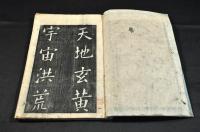 天地玄黄
宇宙洪荒